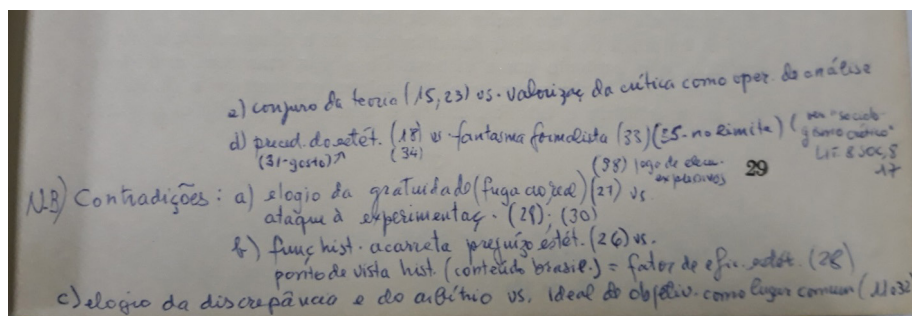 e) conjuro da teoria (15, 23) vs. valorizaç da crítica como oper. de análise
d) preced. do estét. (18) vs. fantasma formalista (33) (35 - no limite) ( ver "sociolo-
(31-gosto) (34) gismo crítico"
(38) jogo de elem. 29 17
explosivos
N.B) Contradições: a) elogio da gratuidade (fuga ao real) (27) vs.
ataque à experimentaç. (28); (30)
b) funç hist. acarreta prejuízo estét. (26) vs.
ponto de vista hist. (conteúdo brasil.) = fator de efic. estét. (28)
c) elogio da discrepância e do arbítrio vs. ideal de objetiv. como lugar comum (11 e 32